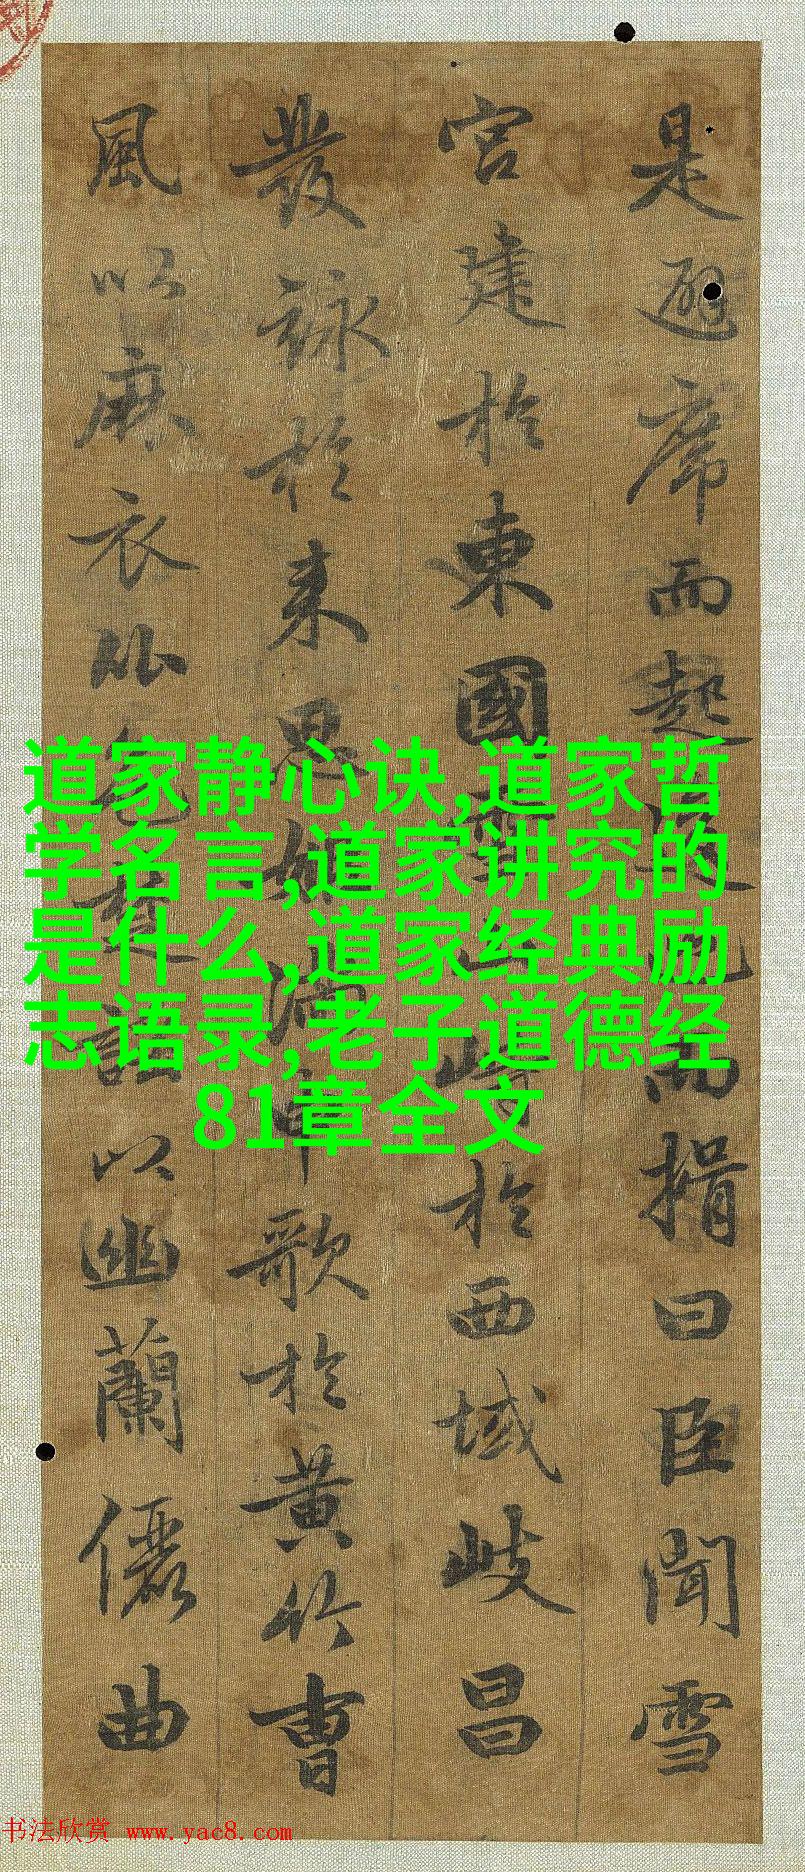 是避席而起而揖曰臣聞雪
宮建於東國峙於西域岐昌
發詠於來思姬滿申歌於黃竹曹
風以麻衣比色楚謠以幽蘭儷曲
道家静心诀,道家哲
学名言,道家讲究的
是什么,道家经典励
志语录,老子道德经
81章全文
书法欣赏 www.yac8.com